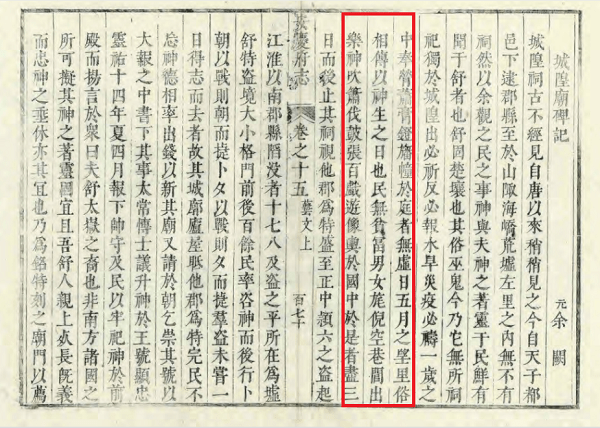 城隍廟碑記
元余闕
城隍祠古不經見自唐以來稍稍見之今自天子都
邑下逮郡縣至於山陬海嶠荒墟左里之內無不有
祠然以余觀之民之事神與夫神之著靈于民鮮有
聞于舒者也舒固楚壤也其俗巫鬼今乃它無所祠
祀獨於城隍出必祈反必報水旱災疫必禱一歲之
中奉膋蕭膏鐙旛幢於庭者無虛日五月之望里俗
相傳以神生之日也民無貧富男女旄倪空巷閭出
樂神吹簫伐鼓張百戲遊像輿於國中於是者盡三
日而後止其祠視他郡爲特盛至正中潁六之盜起
安慶府志 卷之十五 藝文上 百七十
江淮以南郡縣陷没者十七八及盜之平所在爲墟
舒特盜境大小格鬥前後百餘民率咨神而後行卜
朝以戰則朝而捷卜夕以戰則夕而捷羣盜未嘗一
日得志而去者故其城郭廬屋眡他郡爲特完民不
忘神德相率出錢以新其廟又請於朝乞崇其號以
大報之中書下其事太常博士議升神於王號顯忠
靈祐十四年夏四月報下帥守及民以牢祀神於前
殿而揚言於衆曰夫舒太嶽之裔也非南方諸國之
所可擬其神之著靈固宜且吾舒人親上死長旣義
而忠神之垂休亦其宜也乃爲銘特刻之廟門以薦